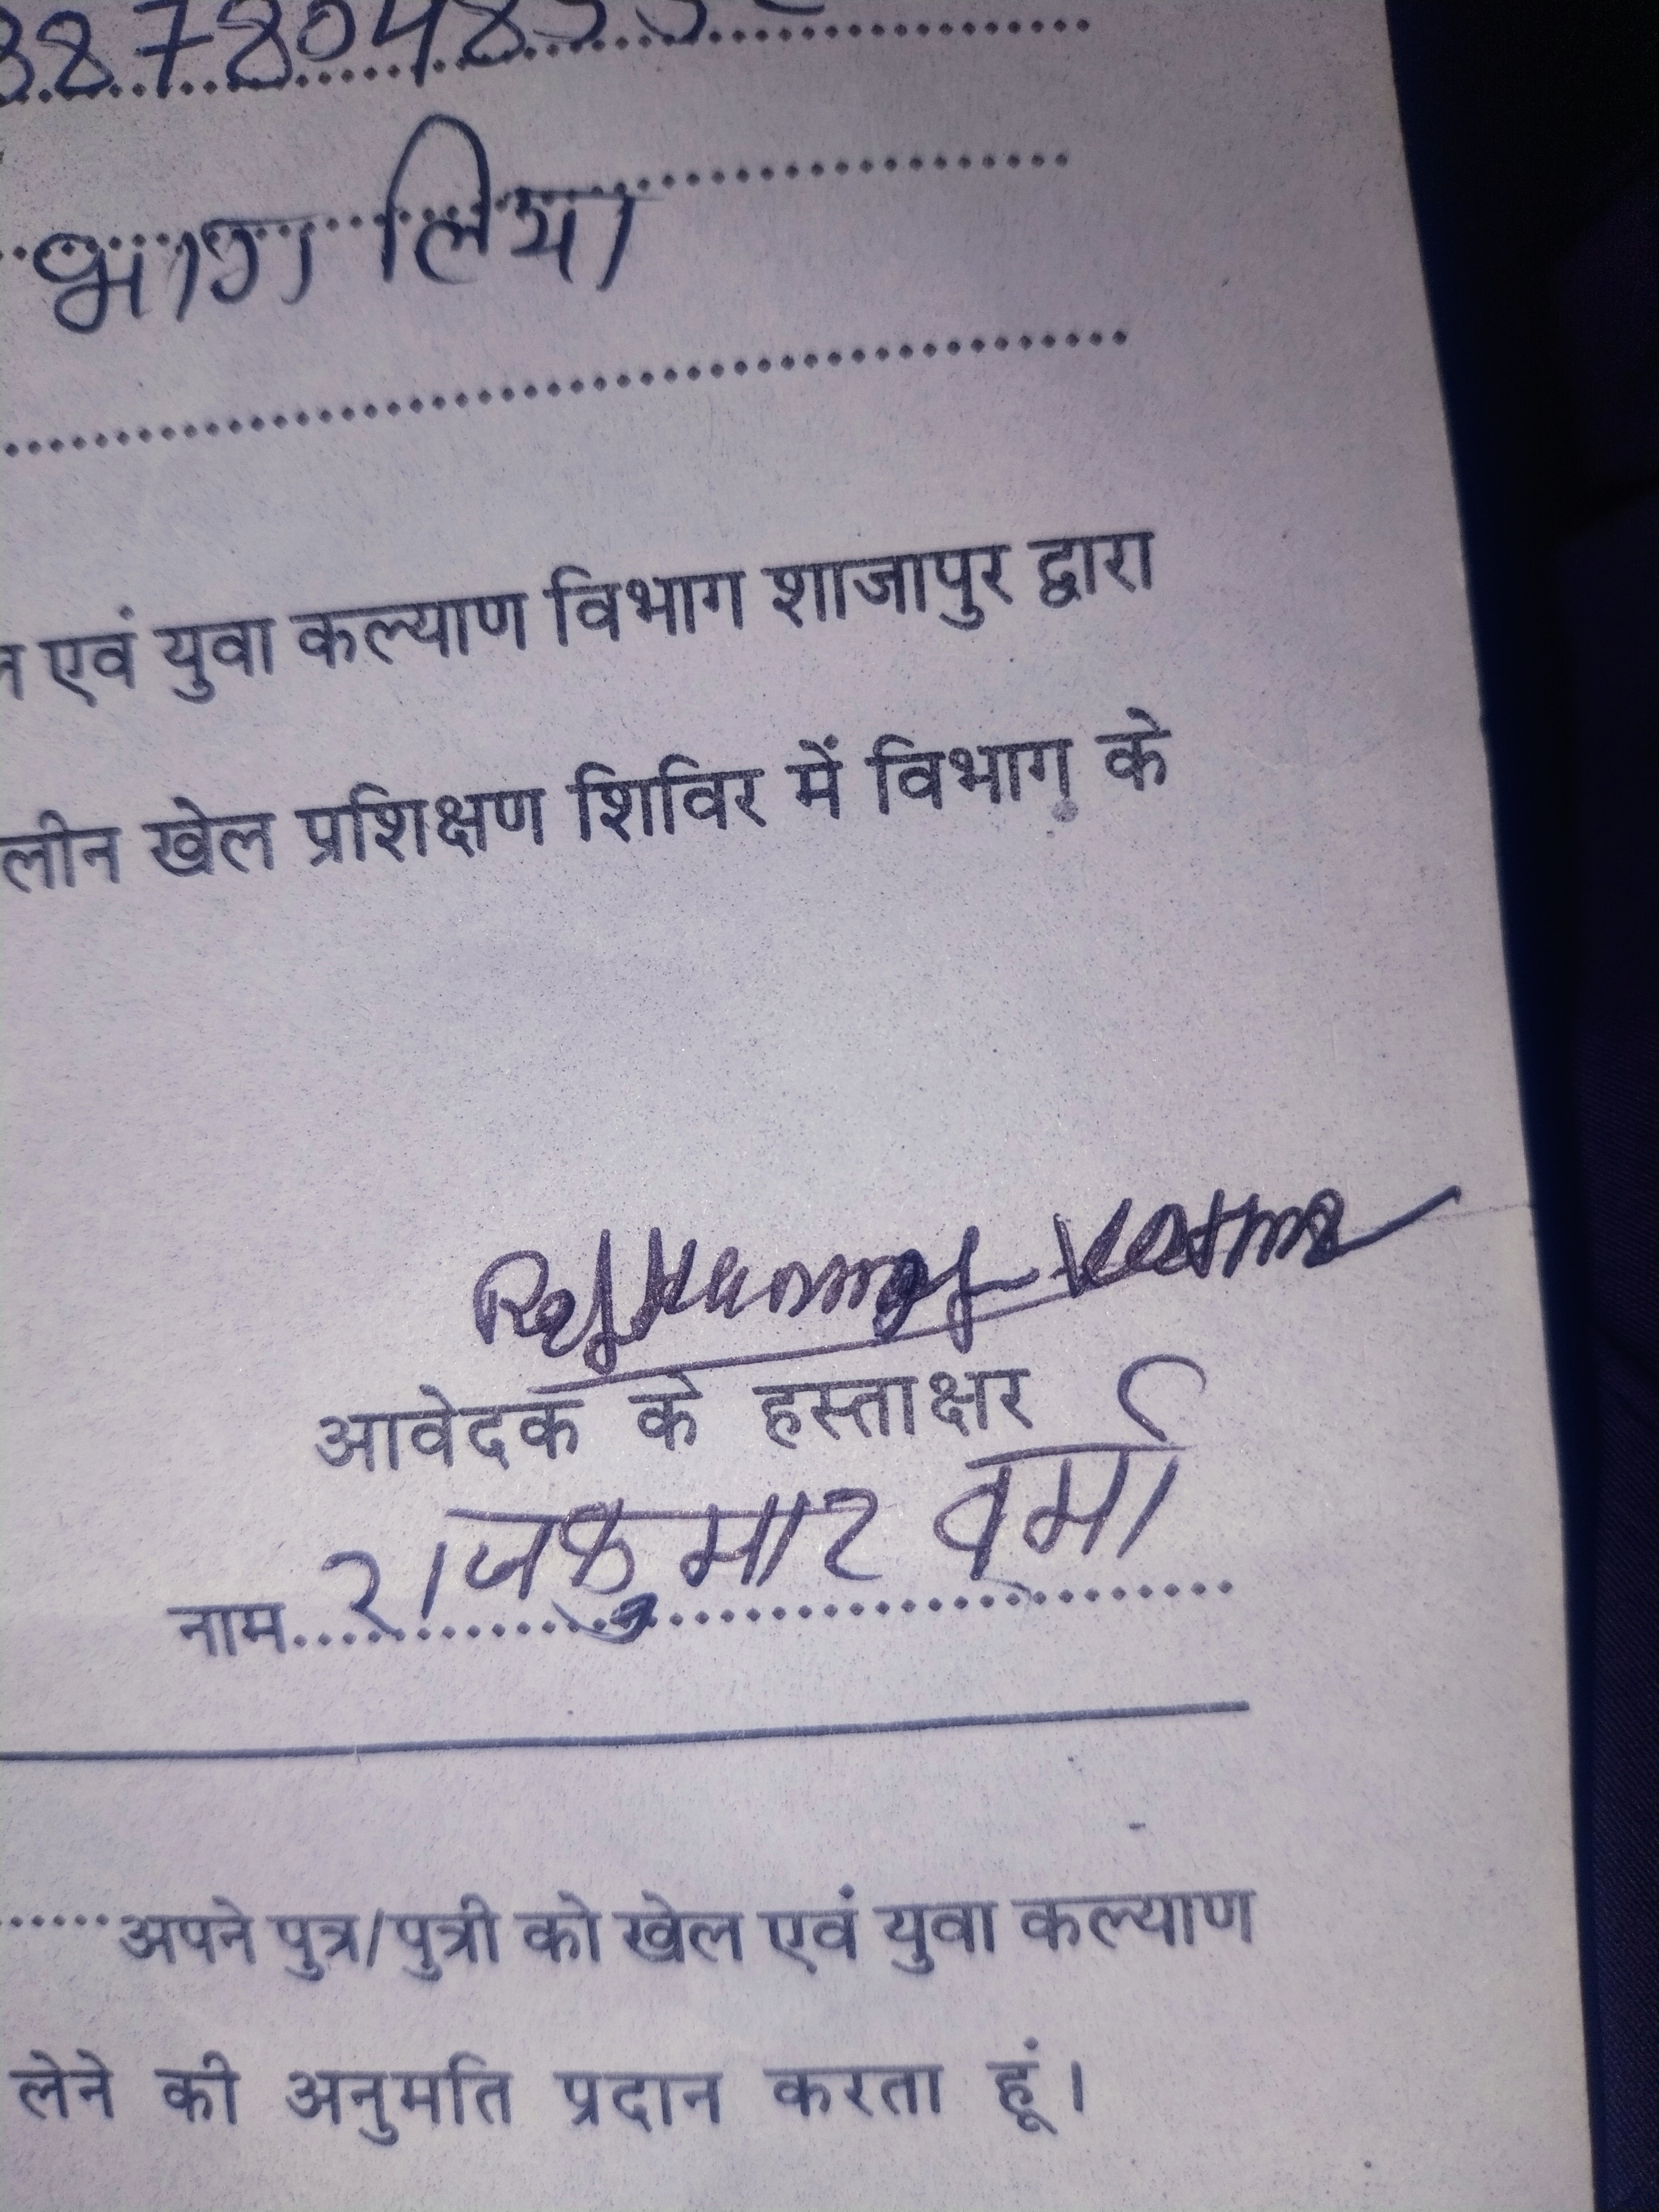 भाग लिया
एवं युवा कल्याण विभाग शाजापुर द्वारा
लीन खेल प्रशिक्षण शिविर में विभाग के
Rajkumar Verma
आवेदक के हस्ताक्षर
नाम राजकुमार वर्मा
अपने पुत्र/पुत्री को खेल एवं युवा कल्याण
लेने की अनुमति प्रदान करता हूं।